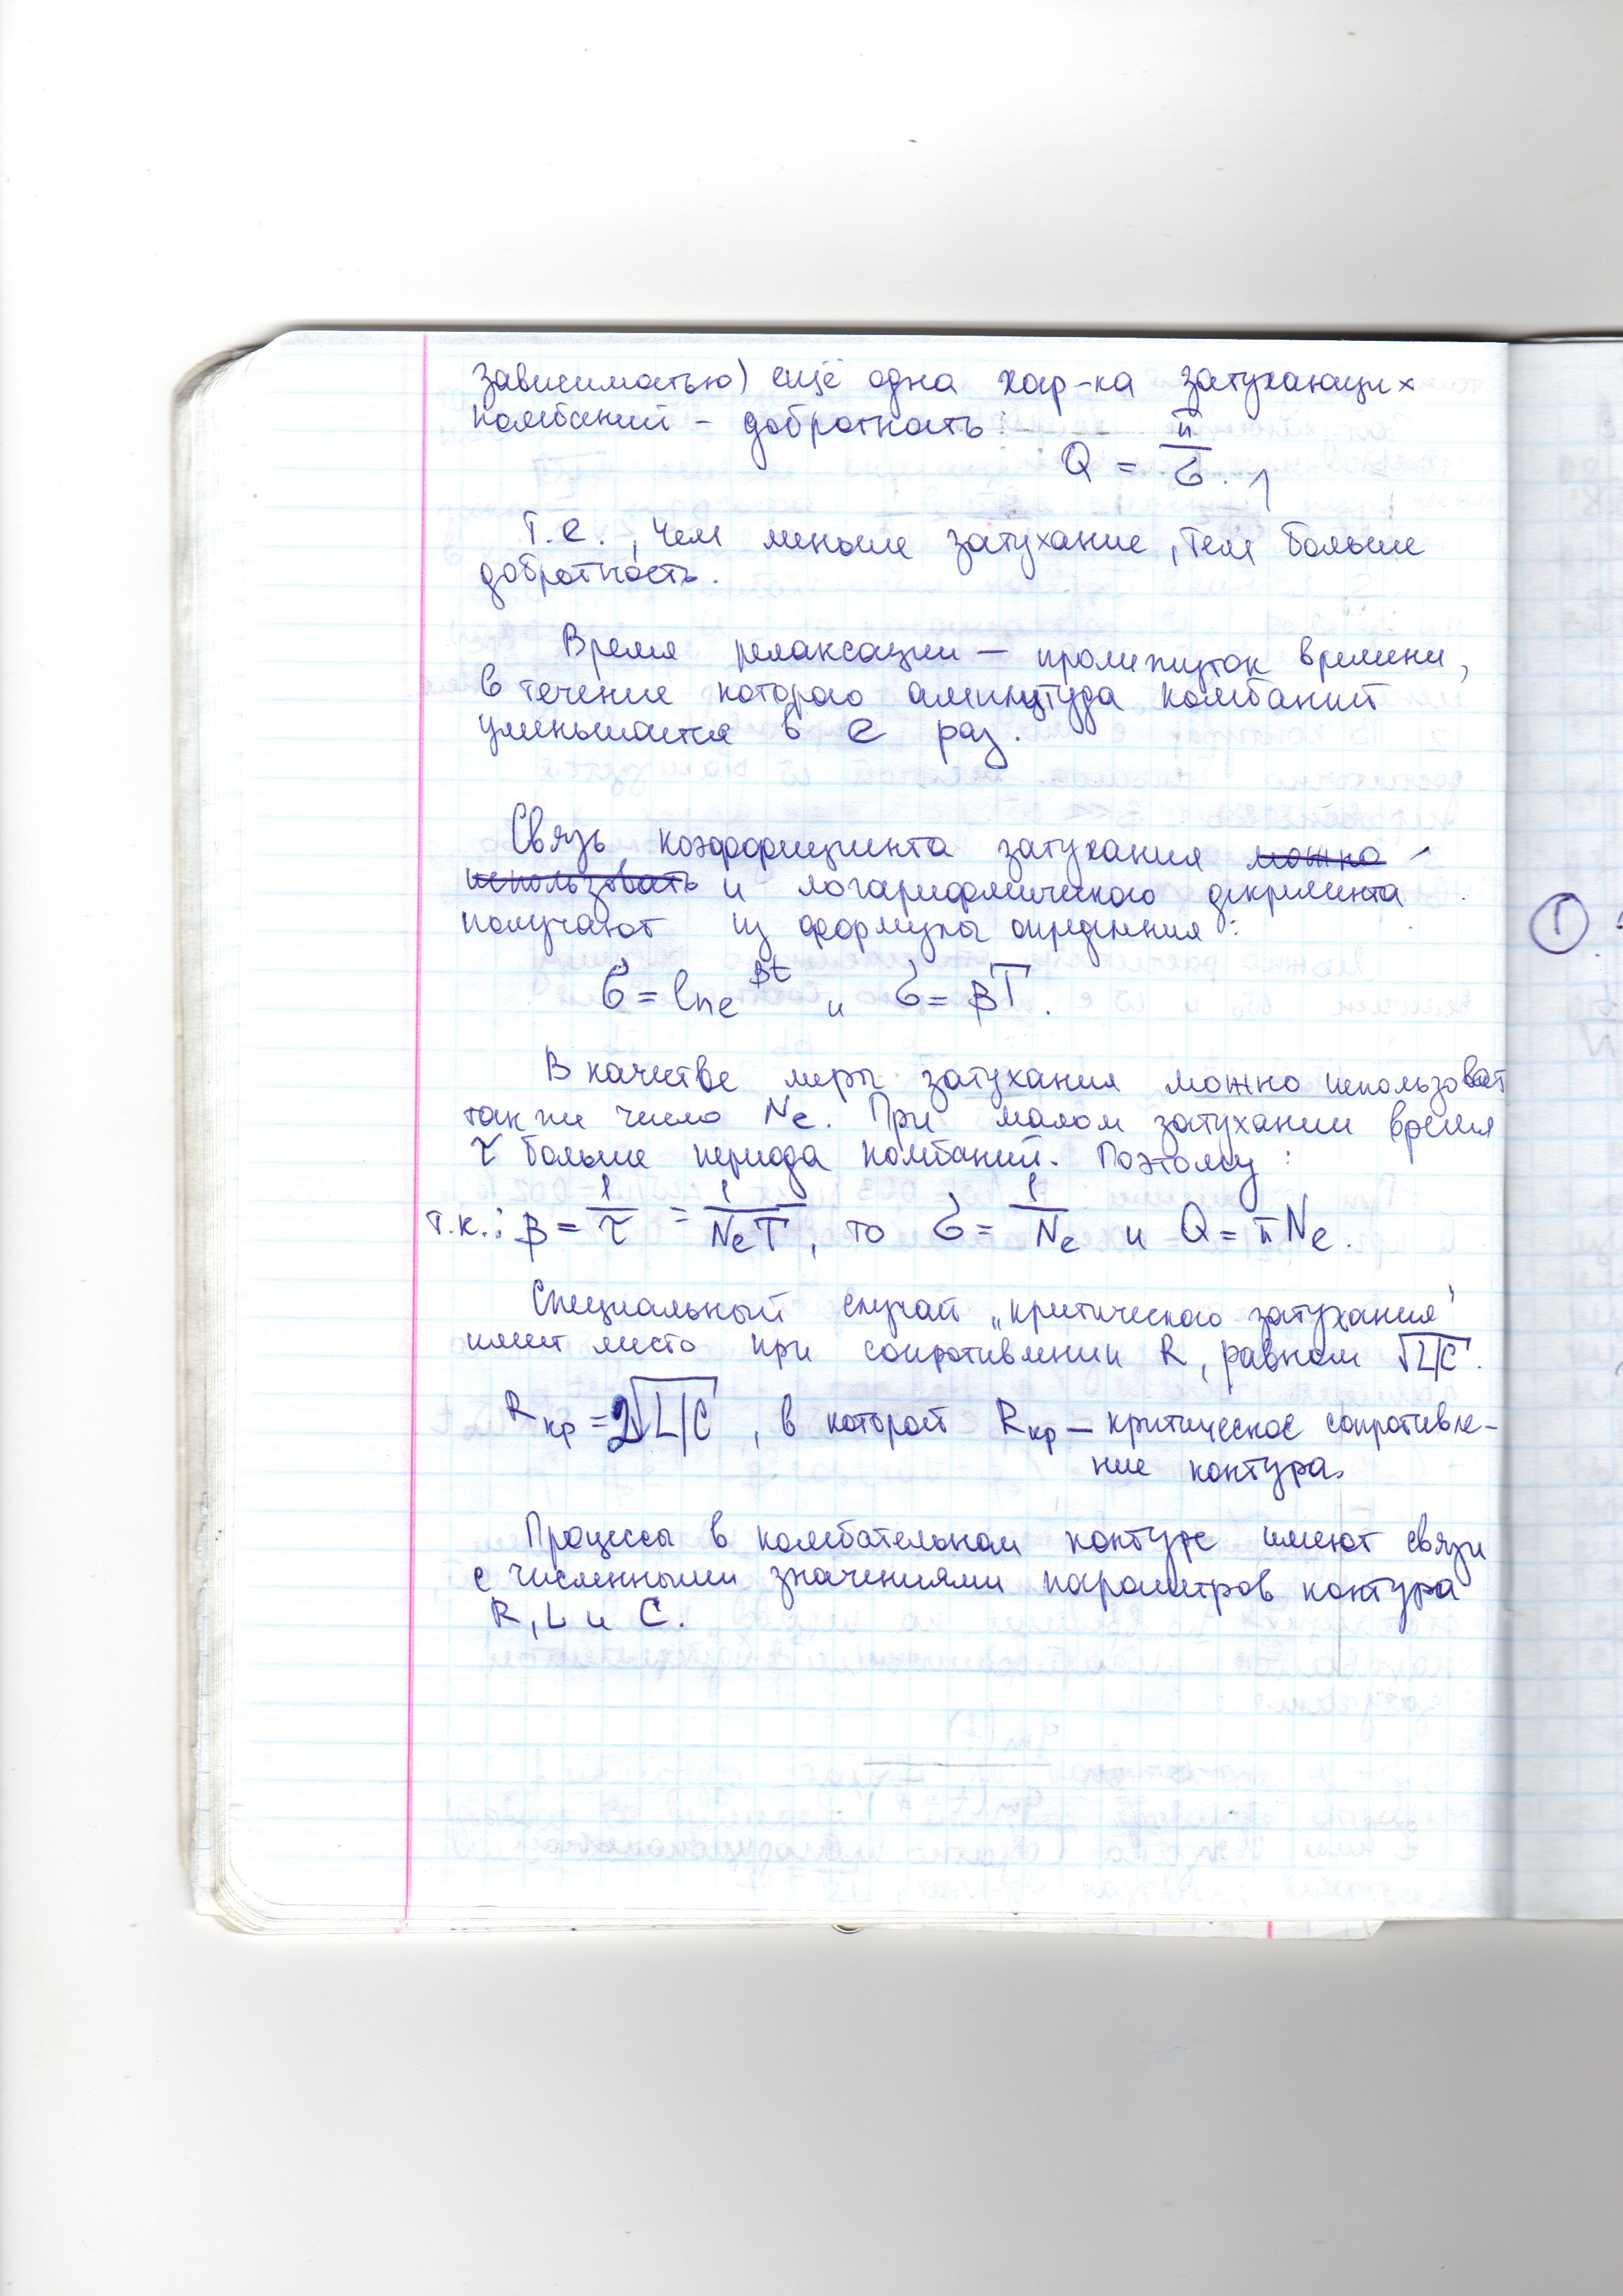 зависимостью) ещё одна хар-ка затухающих
колебаний - добротность:
Q = π/δ.
Т.е., чем меньше затухание, тем больше
добротность.
Время релаксации — промежуток времени,
в течение которого амплитуда колебаний
уменьшается в e раз.
Связь коэффициента затухания можно
использовать и логарифмического декремента
получают из формулы определения:
δ = ln e^βt и δ = βT.
В качестве меры затухания можно использоват
так же число Ne. При малом затухании время
τ больше периода колебаний. Поэтому:
т.к.: β = 1/τ = 1/NeT, то δ = 1/Ne и Q = πNe.
Специальный случай „критического затухания"
имеет место при сопротивлении R, равном √L/C.
Rкр = 2√L/C, в которой Rкр — критическое сопротивле-
ние контура.
Процессы в колебательном контуре имеют связи
с численными значениями параметров контура
R, L и C.
1